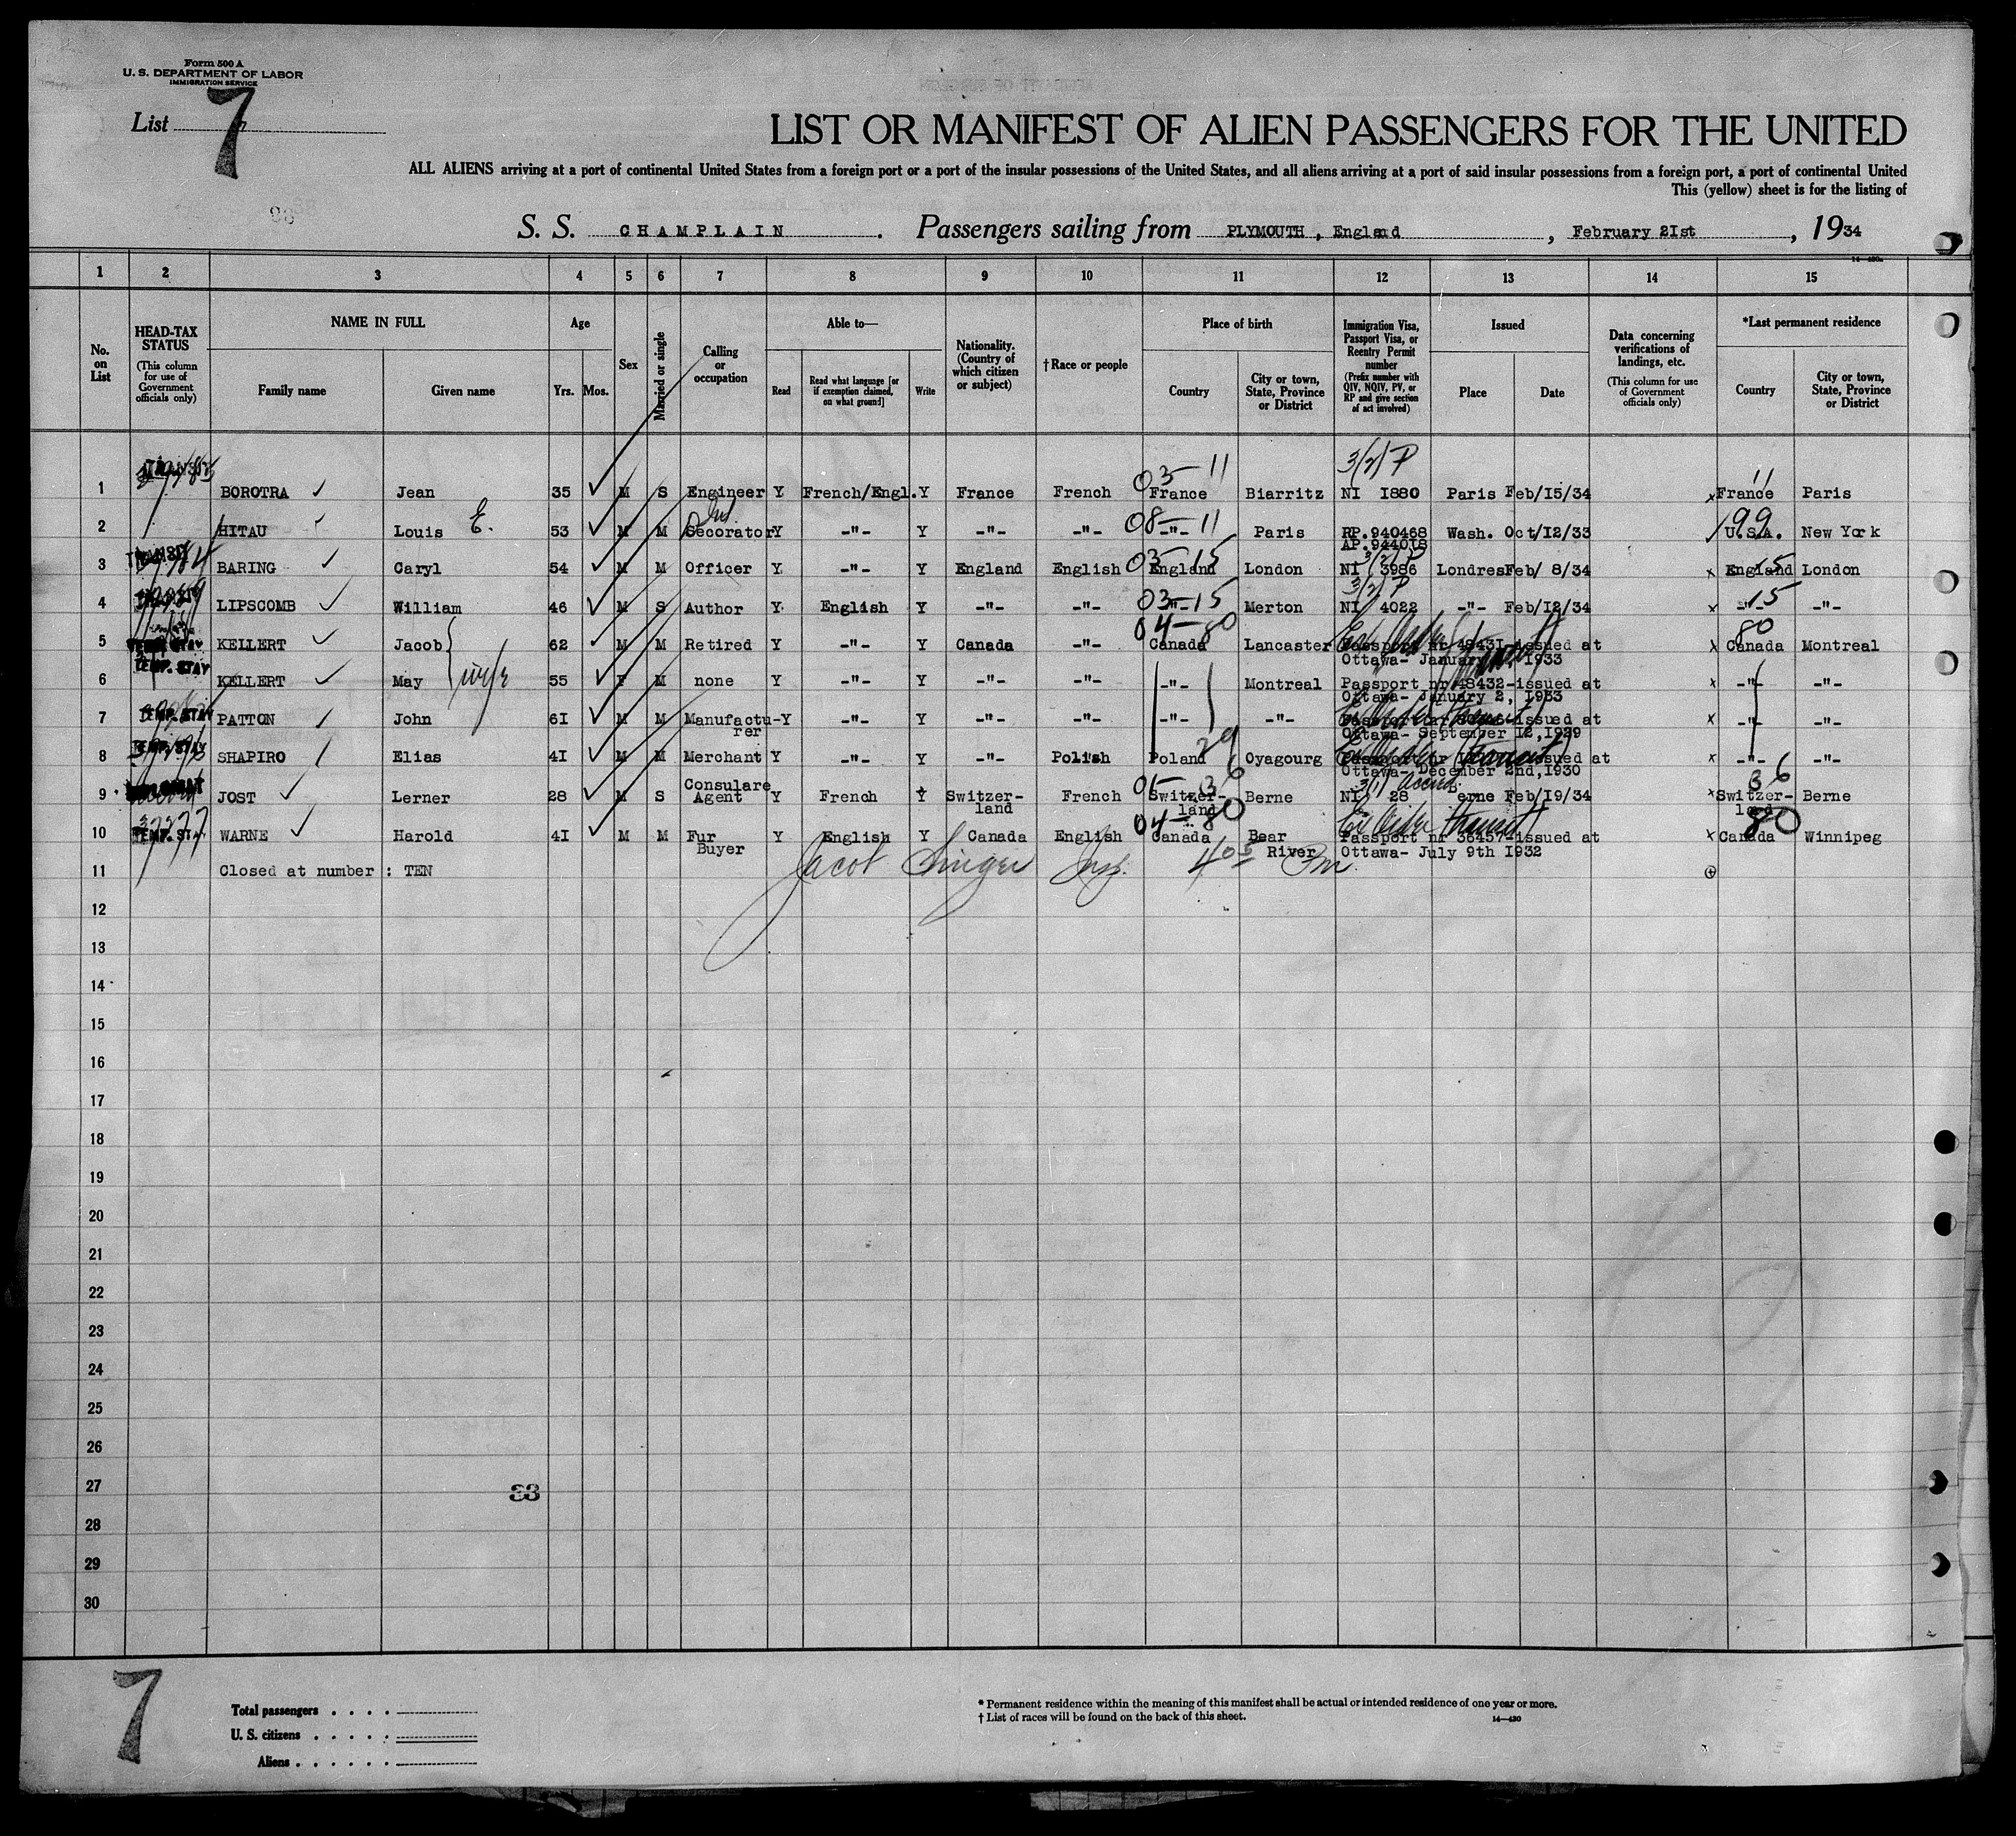 Form 500 A
U. S. DEPARTMENT OF LABOR
IMMIGRATION SERVICE
List 7
LIST OR MANIFEST OF ALIEN PASSENGERS FOR THE UNITED
ALL ALIENS arriving at a port of continental United States from a foreign port or a port of the insular possessions of the United States, and all aliens arriving at a port of said insular possessions from a foreign port, a port of continental United
This (yellow) sheet is for the listing of
S. S. CHAMPLAIN . Passengers sailing from PLYMOUTH, England , February 21st , 1934
1 2 3 4 5 6 7 8 9 10 11 12 13 14 15
No. on List
HEAD-TAX STATUS
(This column for use of Government officials only)
NAME IN FULL
Family name Given name
Age
Yrs. Mos.
Sex
Married or single
Calling or occupation
Able to—
Read
Read what language [or if exemption claimed, on what ground]
Write
Nationality. (Country of which citizen or subject)
† Race or people
Place of birth
Country
City or town, State, Province or District
Immigration Visa, Passport Visa, or Reentry Permit number
(Prefix number with QIV, NQIV, PV, or RP and give section of act involved)
Issued
Place Date
Data concerning verifications of landings, etc.
(This column for use of Government officials only)
*Last permanent residence
Country
City or town, State, Province or District
3(2) P
03-11 11
1 BOROTRA Jean 35 M S Engineer Y French/Engl. Y France French France Biarritz NI 1880 Paris Feb/15/34 France Paris
08-11 99
2 HITAU Louis E. 53 M M Decorator Y -"- Y -"- -"- -"- Paris RP.940468 Wash. Oct/12/33 U.S.A. New York
AP.944018
3(2) P
03-15 15
3 BARING Caryl 54 M M Officer Y -"- Y England English England London NI 3986 Londres Feb/ 8/34 England London
3(2) P
03-15 15
4 LIPSCOMB William 46 M S Author Y English Y -"- -"- -"- Merton NI 4022 -"- Feb/12/34 -"- -"-
04-80 80
TEMP. STAY
5 KELLERT Jacob 62 M M Retired Y -"- Y Canada -"- Canada Lancaster Passport nr 48431-issued at Canada Montreal
Ottawa- January 1933
TEMP. STAY
wife
6 KELLERT May 55 F M none Y -"- Y -"- -"- -"- Montreal Passport nr 48432-issued at -"- -"-
Ottawa- January 2, 1933
TEMP. STAY
7 PATTON John 61 M M Manufactu-rer Y -"- Y -"- -"- -"- -"- Passport nr issued at -"- -"-
Ottawa- September 12, 1929
TEMP. STAY
29
8 SHAPIRO Elias 41 M M Merchant Y -"- Y -"- Polish Poland Oyagourg nr issued at -"- -"-
Ottawa- December 2nd, 1930
01-36 36
9 JOST Lerner 28 M S Consulare Agent Y French Y Switzer-land French Switzer-land Berne NI 28 erne Feb/19/34 Switzer-land Berne
04-80 80
TEMP. STAY
10 WARNE Harold 41 M M Fur Buyer Y English Y Canada English Canada Bear River Passport nr 36457-issued at Canada Winnipeg
Ottawa- July 9th 1932
11 Closed at number : TEN
Jacob Singer Insp. 405 Pm
12
13
14
15
16
17
18
19
20
21
22
23
24
25
26
27
33
28
29
30
7
Total passengers . . . .
U. S. citizens . . . . .
Aliens . . . . . .
* Permanent residence within the meaning of this manifest shall be actual or intended residence of one year or more.
† List of races will be found on the back of this sheet.
14—430